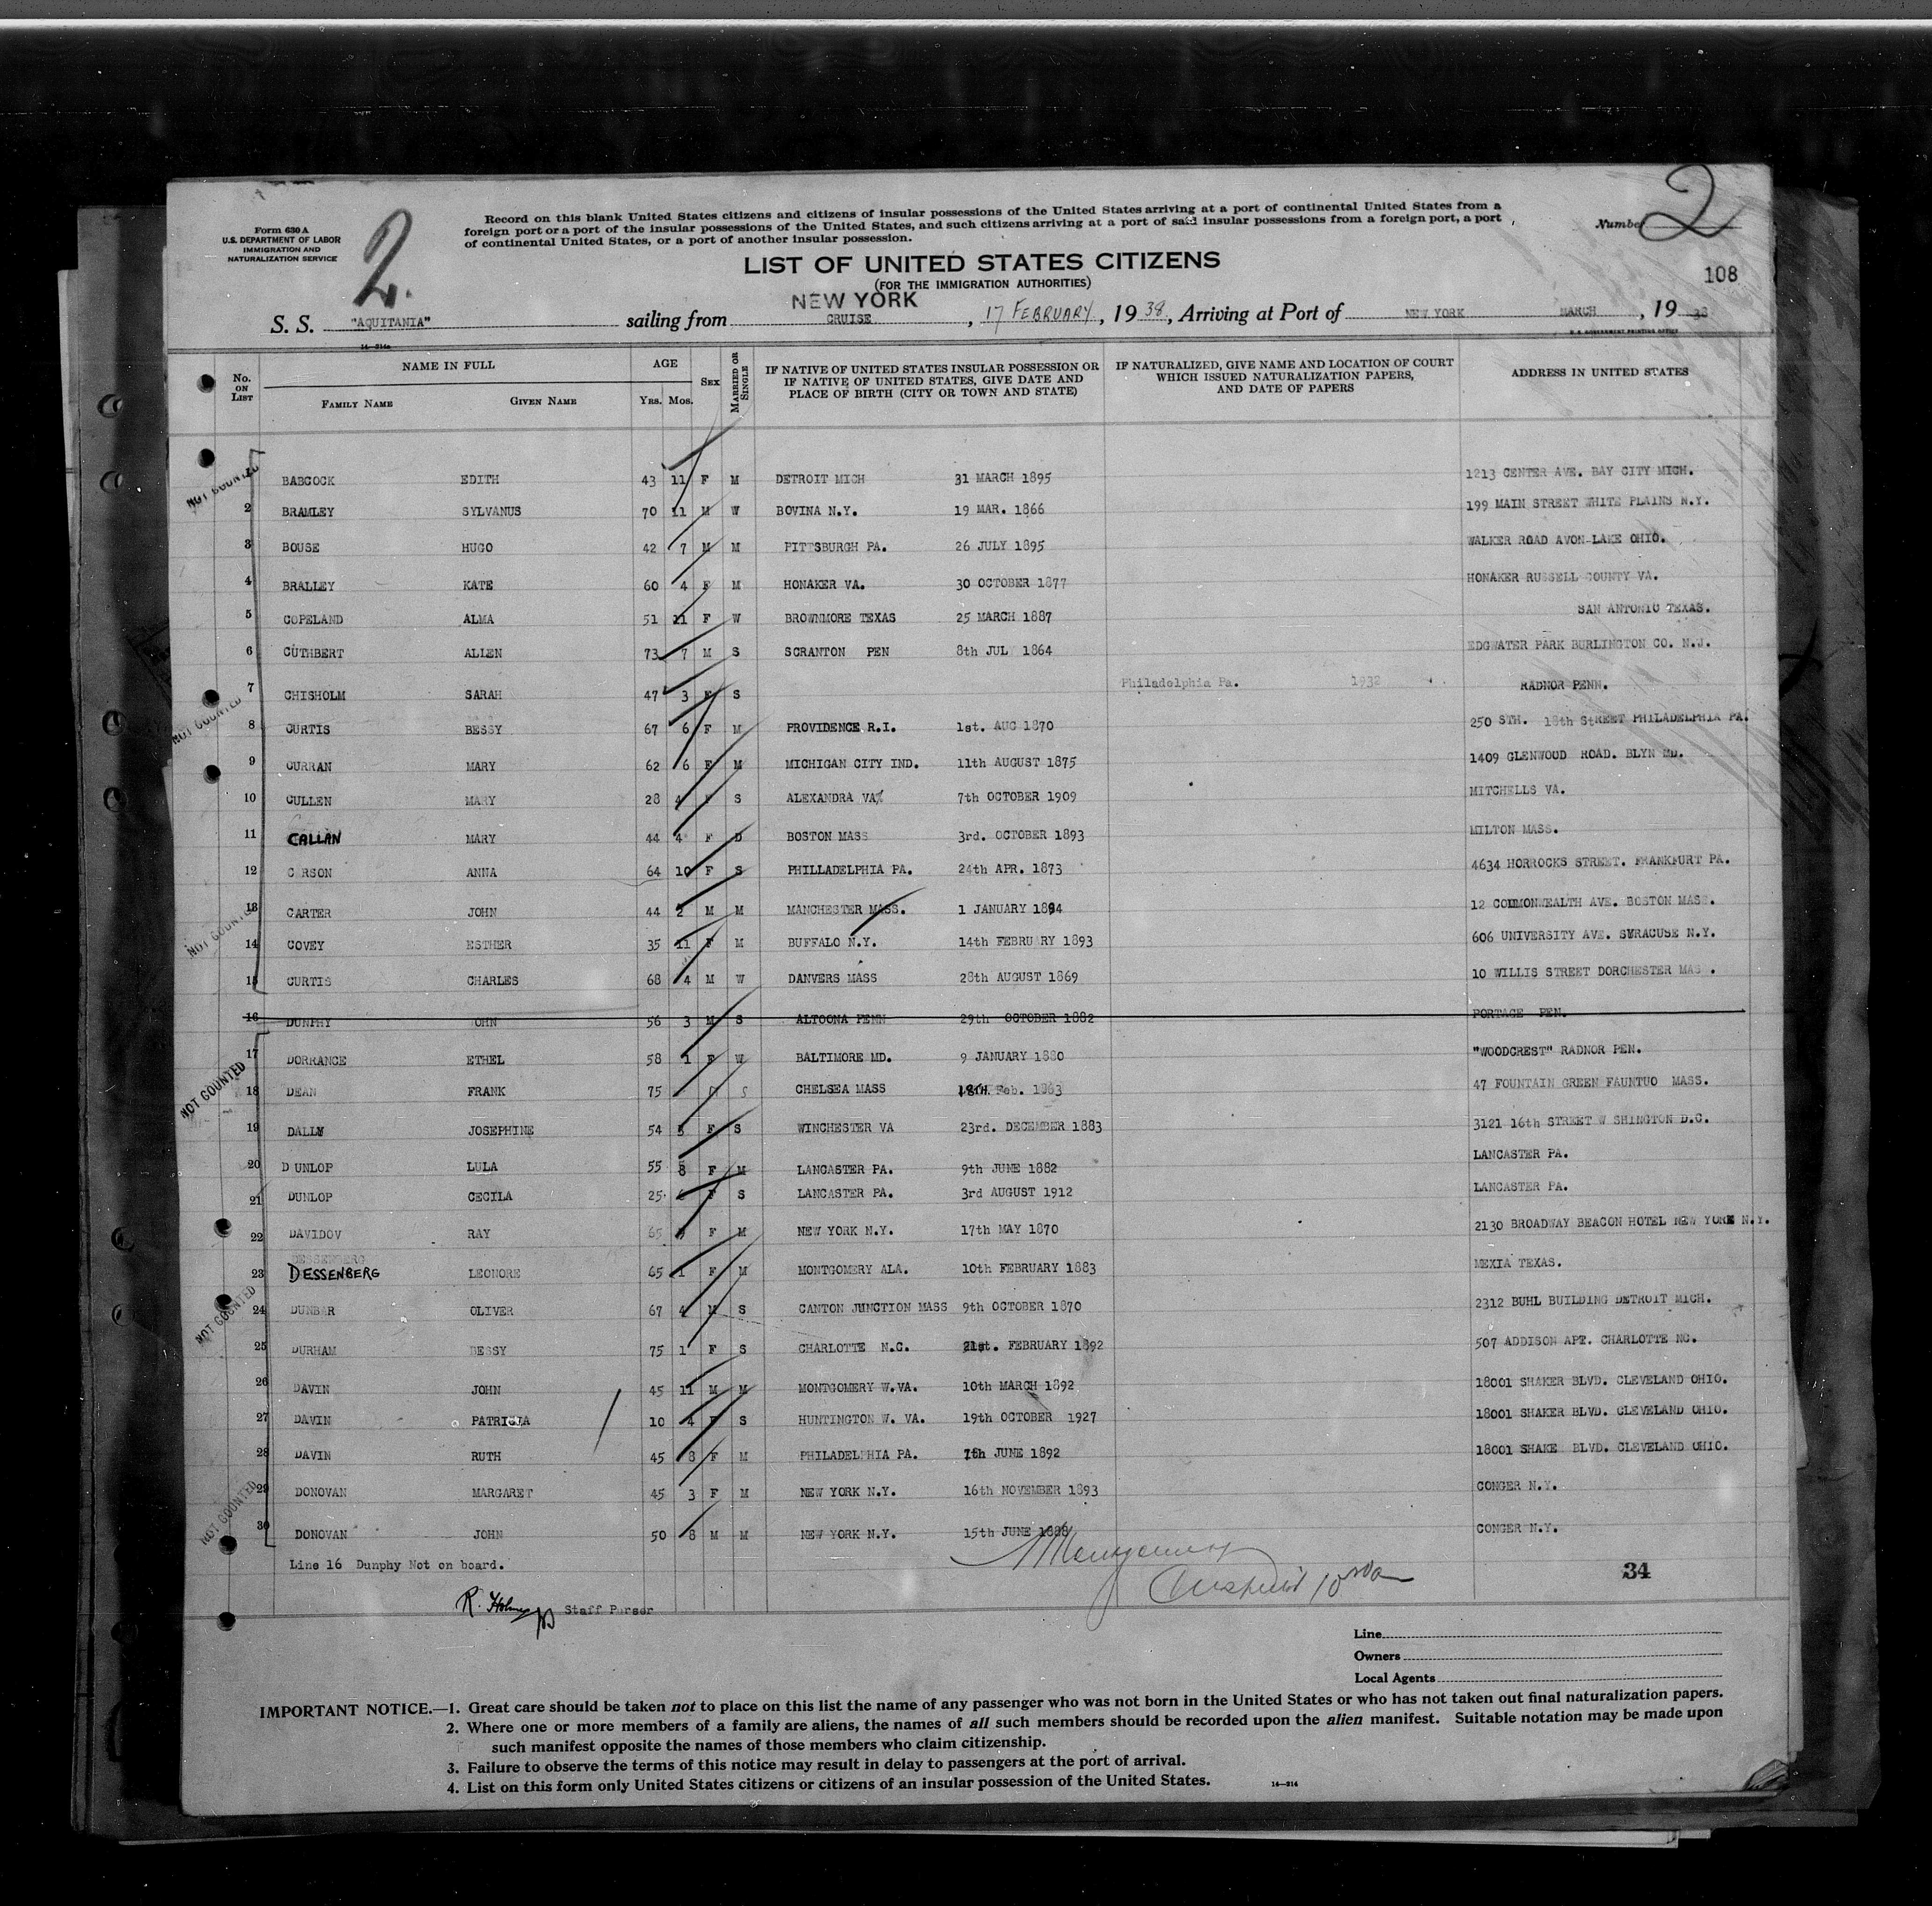 Form 630 A
U.S. DEPARTMENT OF LABOR
IMMIGRATION AND
NATURALIZATION SERVICE
2.
Record on this blank United States citizens and citizens of insular possessions of the United States arriving at a port of continental United States from a
foreign port or a port of the insular possessions of the United States, and such citizens arriving at a port of said insular possessions from a foreign port, a port
of continental United States, or a port of another insular possession.
Number 2
LIST OF UNITED STATES CITIZENS
(FOR THE IMMIGRATION AUTHORITIES)
108
NEW YORK
S. S. "AQUITANIA" sailing from CRUISE, 17 FEBRUARY, 19 38, Arriving at Port of NEW YORK MARCH, 19 38
14-314a
U. S. GOVERNMENT PRINTING OFFICE
No. ON LIST
NAME IN FULL
FAMILY NAME GIVEN NAME
AGE
Yrs. Mos.
SEX
MARRIED OR SINGLE
IF NATIVE OF UNITED STATES INSULAR POSSESSION OR
IF NATIVE OF UNITED STATES, GIVE DATE AND
PLACE OF BIRTH (CITY OR TOWN AND STATE)
IF NATURALIZED, GIVE NAME AND LOCATION OF COURT
WHICH ISSUED NATURALIZATION PAPERS,
AND DATE OF PAPERS
ADDRESS IN UNITED STATES
NOT COUNTED
BABCOCK EDITH 43 11 F M DETROIT MICH 31 MARCH 1895 1213 CENTER AVE. BAY CITY MICH.
2 BRAMLEY SYLVANUS 70 11 M W BOVINA N.Y. 19 MAR. 1866 199 MAIN STREET WHITE PLAINS N.Y.
3 BOUSE HUGO 42 7 M M PITTSBURGH PA. 26 JULY 1895 WALKER ROAD AVON-LAKE OHIO.
4 BRALLEY KATE 60 4 F M HONAKER VA. 30 OCTOBER 1877 HONAKER RUSSELL COUNTY VA.
5 COPELAND ALMA 51 11 F W BROWNMORE TEXAS 25 MARCH 1887 SAN ANTONIO TEXAS.
6 CUTHBERT ALLEN 73 7 M S SCRANTON PEN 8th JUL 1864 EDGWATER PARK BURLINGTON CO. N.J.
7 CHISHOLM SARAH 47 3 F S Philadelphia Pa. 1932 RADNOR PENN.
NOT COUNTED
8 CURTIS BESSY 67 6 F M PROVIDENCE R.I. 1st. AUG 1870 250 STH. 18th StREET PHILADELPHIA PA.
9 CURRAN MARY 62 6 F M MICHIGAN CITY IND. 11th AUGUST 1875 1409 GLENWOOD ROAD. BLYN MD.
10 CULLEN MARY 28 4 F S ALEXANDRA VA 7th OCTOBER 1909 MITCHELLS VA.
11 CALLAN MARY 44 4 F D BOSTON MASS 3rd. OCTOBER 1893 MILTON MASS.
12 C RSON ANNA 64 10 F S PHILLADELPHIA PA. 24th APR. 1873 4634 HORROCKS STREET. FRANKFURT PA.
NOT COUNTED
13 CARTER JOHN 44 2 M M MANCHESTER MASS. 1 JANUARY 1894 12 COMMONWEALTH AVE. BOSTON MASS.
14 COVEY ESTHER 35 11 F M BUFFALO N.Y. 14th FEBRU RY 1893 606 UNIVERSITY AVE. SYRACUSE N.Y.
15 CURTIS CHARLES 68 4 M W DANVERS MASS 28th AUGUST 1869 10 WILLIS STREET DORCHESTER MAS .
16 DUNPHY OHN 56 3 M S ALTOONA PENN 29th OCTOBER 1882 PORTAGE PEN.
17 DORRANCE ETHEL 58 1 F W BALTIMORE MD. 9 JANUARY 1880 "WOODCREST" RADNOR PEN.
NOT COUNTED
18 DEAN FRANK 75 S CHELSEA MASS Feb. 1863 47 FOUNTAIN GREEN FAUNTUO MASS.
19 DALLY JOSEPHINE 54 F S WINCHESTER VA 23rd. DECEMBER 1883 3121 16th STREET W SHINGTON D.C.
20 D UNLOP LULA 55 8 F M LANCASTER PA. 9th JUNE 1882 LANCASTER PA.
21 DUNLOP CECILA 25 F S LANCASTER PA. 3rd AUGUST 1912 LANCASTER PA.
22 DAVIDOV RAY 65 F M NEW YORK N.Y. 17th MAY 1870 2130 BROADWAY BEACON HOTEL NEW YORK N.Y.
DESSENBERG
23 DESSENBERG LEONORE 65 1 F M MONTGOMERY ALA. 10th FEBRUARY 1883 MEXIA TEXAS.
NOT COUNTED
24 DUNBAR OLIVER 67 4 M S CANTON JUNCTION MASS 9th OCTOBER 1870 2312 BUHL BUILDING DETROIT MICH.
25 DURHAM BESSY 75 1 F S CHARLOTTE N.C. 21st. FEBRUARY 1892 507 ADDISON APT. CHARLOTTE NC.
26 DAVIN JOHN 45 11 M M MONTGOMERY W.VA. 10th MARCH 1892 18001 SHAKER BLVD. CLEVELAND OHIO.
27 DAVIN PATRICIA 10 4 F S HUNTINGTON W. VA. 19th OCTOBER 1927 18001 SHAKER BLVD. CLEVELAND OHIO.
28 DAVIN RUTH 45 8 F M PHILADELPHIA PA. 7th JUNE 1892 18001 SHAKE BLVD. CLEVELAND OHIO.
NOT COUNTED
29 DONOVAN MARGARET 45 3 F M NEW YORK N.Y. 16th NOVEMBER 1893 CONGER N.Y.
30 DONOVAN JOHN 50 8 M M NEW YORK N.Y. 15th JUNE 1888 CONGER N.Y.
Line 16 Dunphy Not on board.
34
R. Holmes Staff Purser
Line
Owners
Local Agents
IMPORTANT NOTICE.—1. Great care should be taken not to place on this list the name of any passenger who was not born in the United States or who has not taken out final naturalization papers.
2. Where one or more members of a family are aliens, the names of all such members should be recorded upon the alien manifest. Suitable notation may be made upon
such manifest opposite the names of those members who claim citizenship.
3. Failure to observe the terms of this notice may result in delay to passengers at the port of arrival.
4. List on this form only United States citizens or citizens of an insular possession of the United States.
14-314